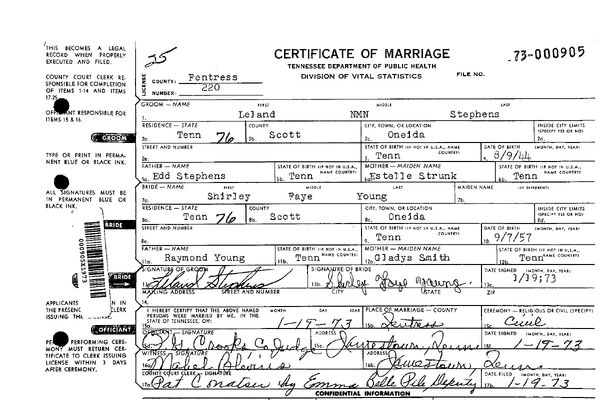 THIS BECOMES A LEGAL RECORD WHEN PROPERLY EXECUTED AND FILED.
COUNTY COURT CLERK RESPONSIBLE FOR COMPLETION OF ITEMS 1-14 AND ITEMS 17-25
RESPONSIBLE FOR ITEMS 15 & 16.
GROOM
TYPE OR PRINT IN PERMANENT BLUE OR BLACK INK.
ALL SIGNATURES MUST BE IN PERMANENT BLUE OR BLACK INK.
BRIDE
BRIDE
OFFICIANT
PERFORMING CEREMONY MUST RETURN CERTIFICATE TO CLERK ISSUING LICENSE WITHIN 3 DAYS AFTER CEREMONY.
25
CERTIFICATE OF MARRIAGE
TENNESSEE DEPARTMENT OF PUBLIC HEALTH
DIVISION OF VITAL STATISTICS
FILE NO. 73-000905
LICENSE COUNTY: Fentress
NUMBER: 220
GROOM — NAME FIRST MIDDLE LAST
1. Leland NMN Stephens
RESIDENCE — STATE COUNTY CITY, TOWN, OR LOCATION INSIDE CITY LIMITS (SPECIFY YES OR NO)
Tenn 76 Scott Oneida
STREET AND NUMBER STATE OF BIRTH (IF NOT IN U.S.A., NAME COUNTRY) DATE OF BIRTH (MONTH, DAY, YEAR)
Tenn 8/9/44
FATHER — NAME STATE OF BIRTH (IF NOT IN U.S.A., NAME COUNTRY) MOTHER — MAIDEN NAME STATE OF BIRTH (IF NOT IN U.S.A., NAME COUNTRY)
Edd Stephens Tenn Estelle Strunk Tenn
BRIDE — NAME FIRST MIDDLE LAST MAIDEN NAME
Shirley Faye Young
RESIDENCE — STATE COUNTY CITY, TOWN, OR LOCATION INSIDE CITY LIMITS (SPECIFY YES OR NO)
Tenn 76 Scott Oneida
STREET AND NUMBER STATE OF BIRTH (IF NOT IN U.S.A., NAME COUNTRY) DATE OF BIRTH (MONTH, DAY, YEAR)
Tenn 9/7/57
FATHER — NAME STATE OF BIRTH (IF NOT IN U.S.A., NAME COUNTRY) MOTHER — MAIDEN NAME STATE OF BIRTH (IF NOT IN U.S.A., NAME COUNTRY)
Raymond Young Tenn Gladys Smith Tenn
SIGNATURE OF GROOM SIGNATURE OF BRIDE DATE SIGNED (MONTH, DAY, YEAR)
Leland Stephens Shirley Faye Young 1/19/73
MAILING ADDRESS STREET AND NUMBER CITY STATE ZIP
I HEREBY CERTIFY THAT THE ABOVE NAMED PERSONS WERE MARRIED BY ME, IN THE STATE OF TENNESSEE, ON: MONTH DAY YEAR PLACE OF MARRIAGE — COUNTY CEREMONY — RELIGIOUS OR CIVIL (SPECIFY)
1-19-73 Fentress Civil
OFFICIANT: SIGNATURE ADDRESS DATE SIGNED (MONTH, DAY, YEAR)
Co Judge Jamestown, Tenn 1-19-73
WITNESS: SIGNATURE ADDRESS
Mabel Jamestown, Tenn
COUNTY COURT CLERK — SIGNATURE DATE FILED (MONTH, DAY, YEAR)
Pat Conatser by Emma Belle Pile, Deputy 1-19-73
CONFIDENTIAL INFORMATION